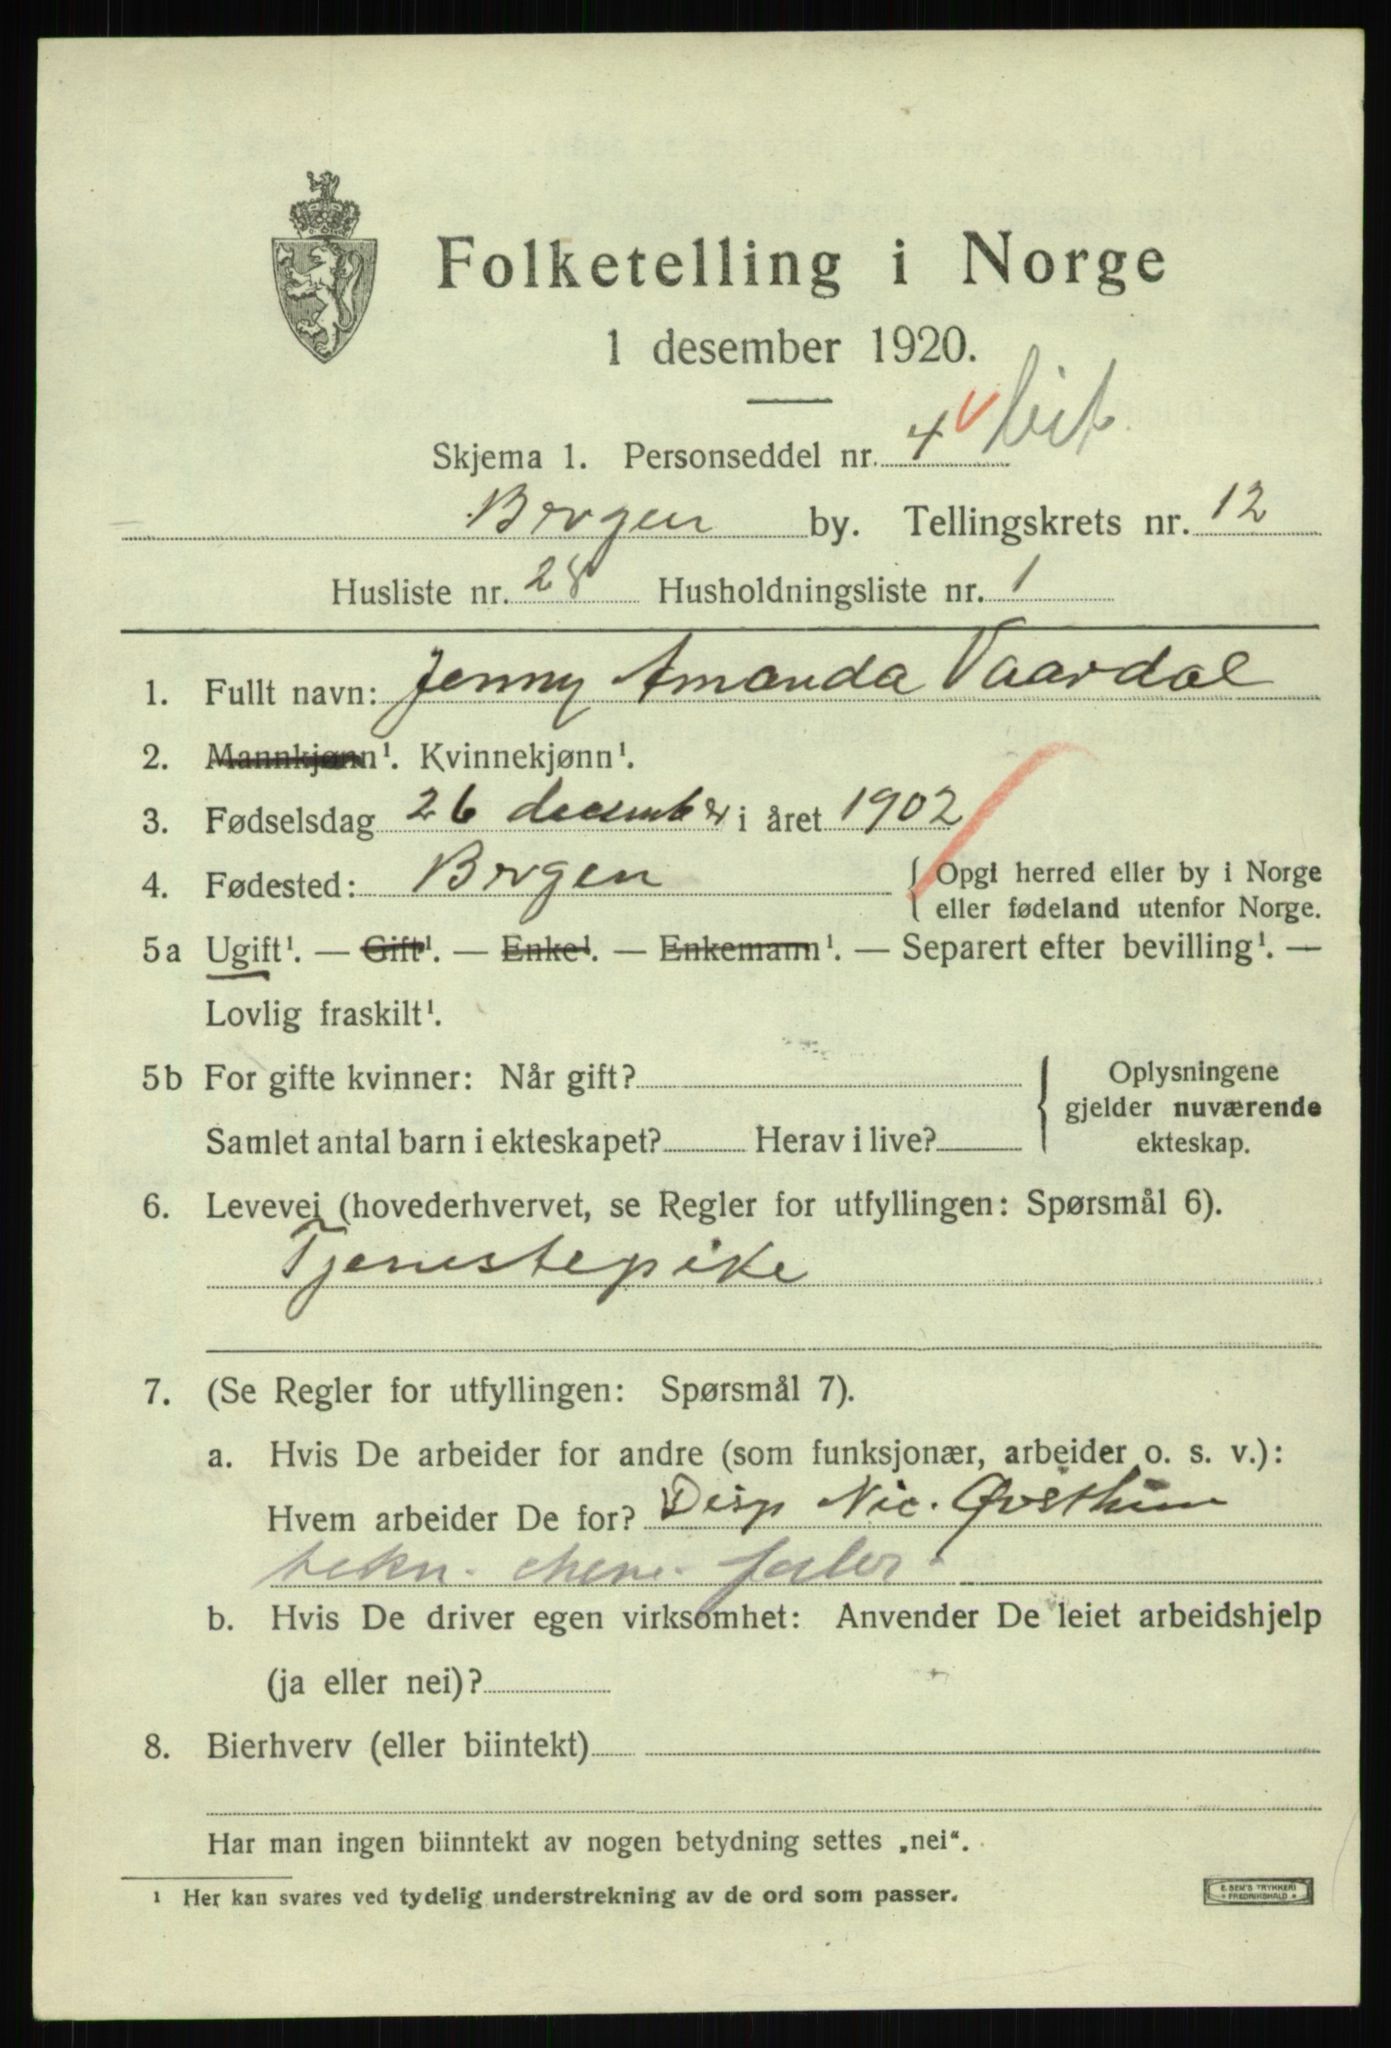 Folketelling i Norge
1 desember 1920.
Skjema 1. Personseddel nr. 4
Bergen by. Tellingskrets nr. 12
Husliste nr. 28 Husholdningsliste nr. 1
1. Fullt navn: Jenny Amanda Vaardal
2. Mannkjønn¹. Kvinnekjønn¹.
3. Fødselsdag 26 december i året 1902
4. Fødested: Bergen { Opgi herred eller by i Norge
eller fødeland utenfor Norge.
5a Ugift¹. — Gift¹. — Enke¹. — Enkemann¹. — Separert efter bevilling¹. —
Lovlig fraskilt¹.
5b For gifte kvinner: Når gift? } Oplysningene
gjelder nuværende
Samlet antal barn i ekteskapet? Herav i live? ekteskap.
6. Levevei (hovederhvervet, se Regler for utfyllingen: Spørsmål 6).
Tjenestepike
7. (Se Regler for utfyllingen: Spørsmål 7).
a. Hvis De arbeider for andre (som funksjonær, arbeider o. s. v.):
Hvem arbeider De for? Disp Nic. Øvsthun
tekn. chem.
b. Hvis De driver egen virksomhet: Anvender De leiet arbeidshjelp
(ja eller nei)?
8. Bierhverv (eller biintekt)
Har man ingen biinntekt av nogen betydning settes „nei“.
¹ Her kan svares ved tydelig understrekning av de ord som passer.
E. SEM'S TRYKKERI
FREDRIKSHALD